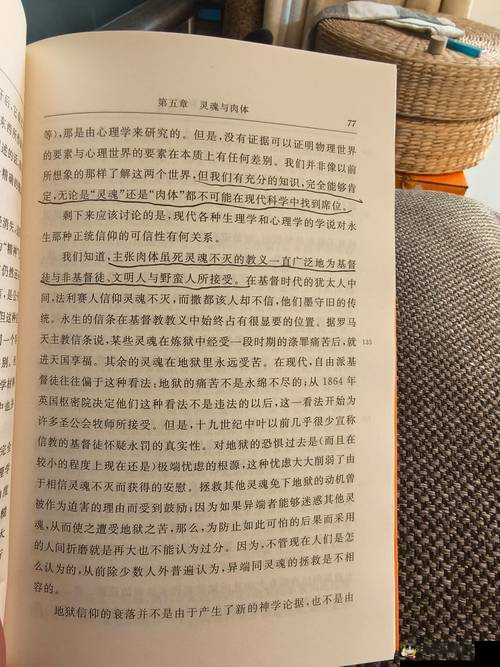 第五章 灵魂与肉体
77
等),那是由心理学来研究的。但是,没有证据可以证明物理世界
的要素与心理世界的要素在本质上有任何差别。我们并非像以前
所想象的那样了解这两个世界,但我们有充分的知识,完全能够肯
定,无论是“灵魂”还是“肉体”都不可能在现代科学中找到席位。
剩下来应该讨论的是,现代各种生理学和心理学的学说对永
生那种正统信仰的可信性有何关系。
我们知道,主张肉体虽死灵魂不灭的教义一直广泛地为基督
徒与非基督徒、文明人与野蛮人所接受。在基督时代的犹太人中
间,法利赛人信仰灵魂不灭,而撒都该人却不信,他们墨守旧的传
统。永生的信条在基督教教义中始终占有很显要的位置。据罗马
天主教信条说,某些灵魂在炼狱中经受一段时期的涤罪痛苦后,就
135
进天国享福。其余的灵魂在地狱里永远受苦。在现代,自由派基
督徒往往偏于这种看法:地狱的痛苦不是永绵不尽的;从1864年
英国枢密院决定他们这种看法不是违法的以后,这一看法开始为
许多圣公会牧师所接受。但是,十九世纪中叶以前几乎很少宣称
信教的基督徒怀疑永罚的真实性。对地狱的恐惧过去是(而且在
较小的程度上现在还是)极端忧虑的根源,这种忧虑大大削弱了由
于相信灵魂不灭而获得的安慰。拯救其他灵魂免下地狱的动机曾
被作为迫害的理由而受到鼓励;因为如果异端者能够迷惑其他灵
魂,从而使之遭受地狱之苦,那么,为防止如此可怕的后果而采用
的人间折磨就是再大也不能认为过分。因为,不管现在人们是怎
么认为的,从前除少数人外普遍认为,异端同灵魂的拯救是不相
容的。
地狱信仰的衰落并不是由于产生了新的神学论据,也不是由